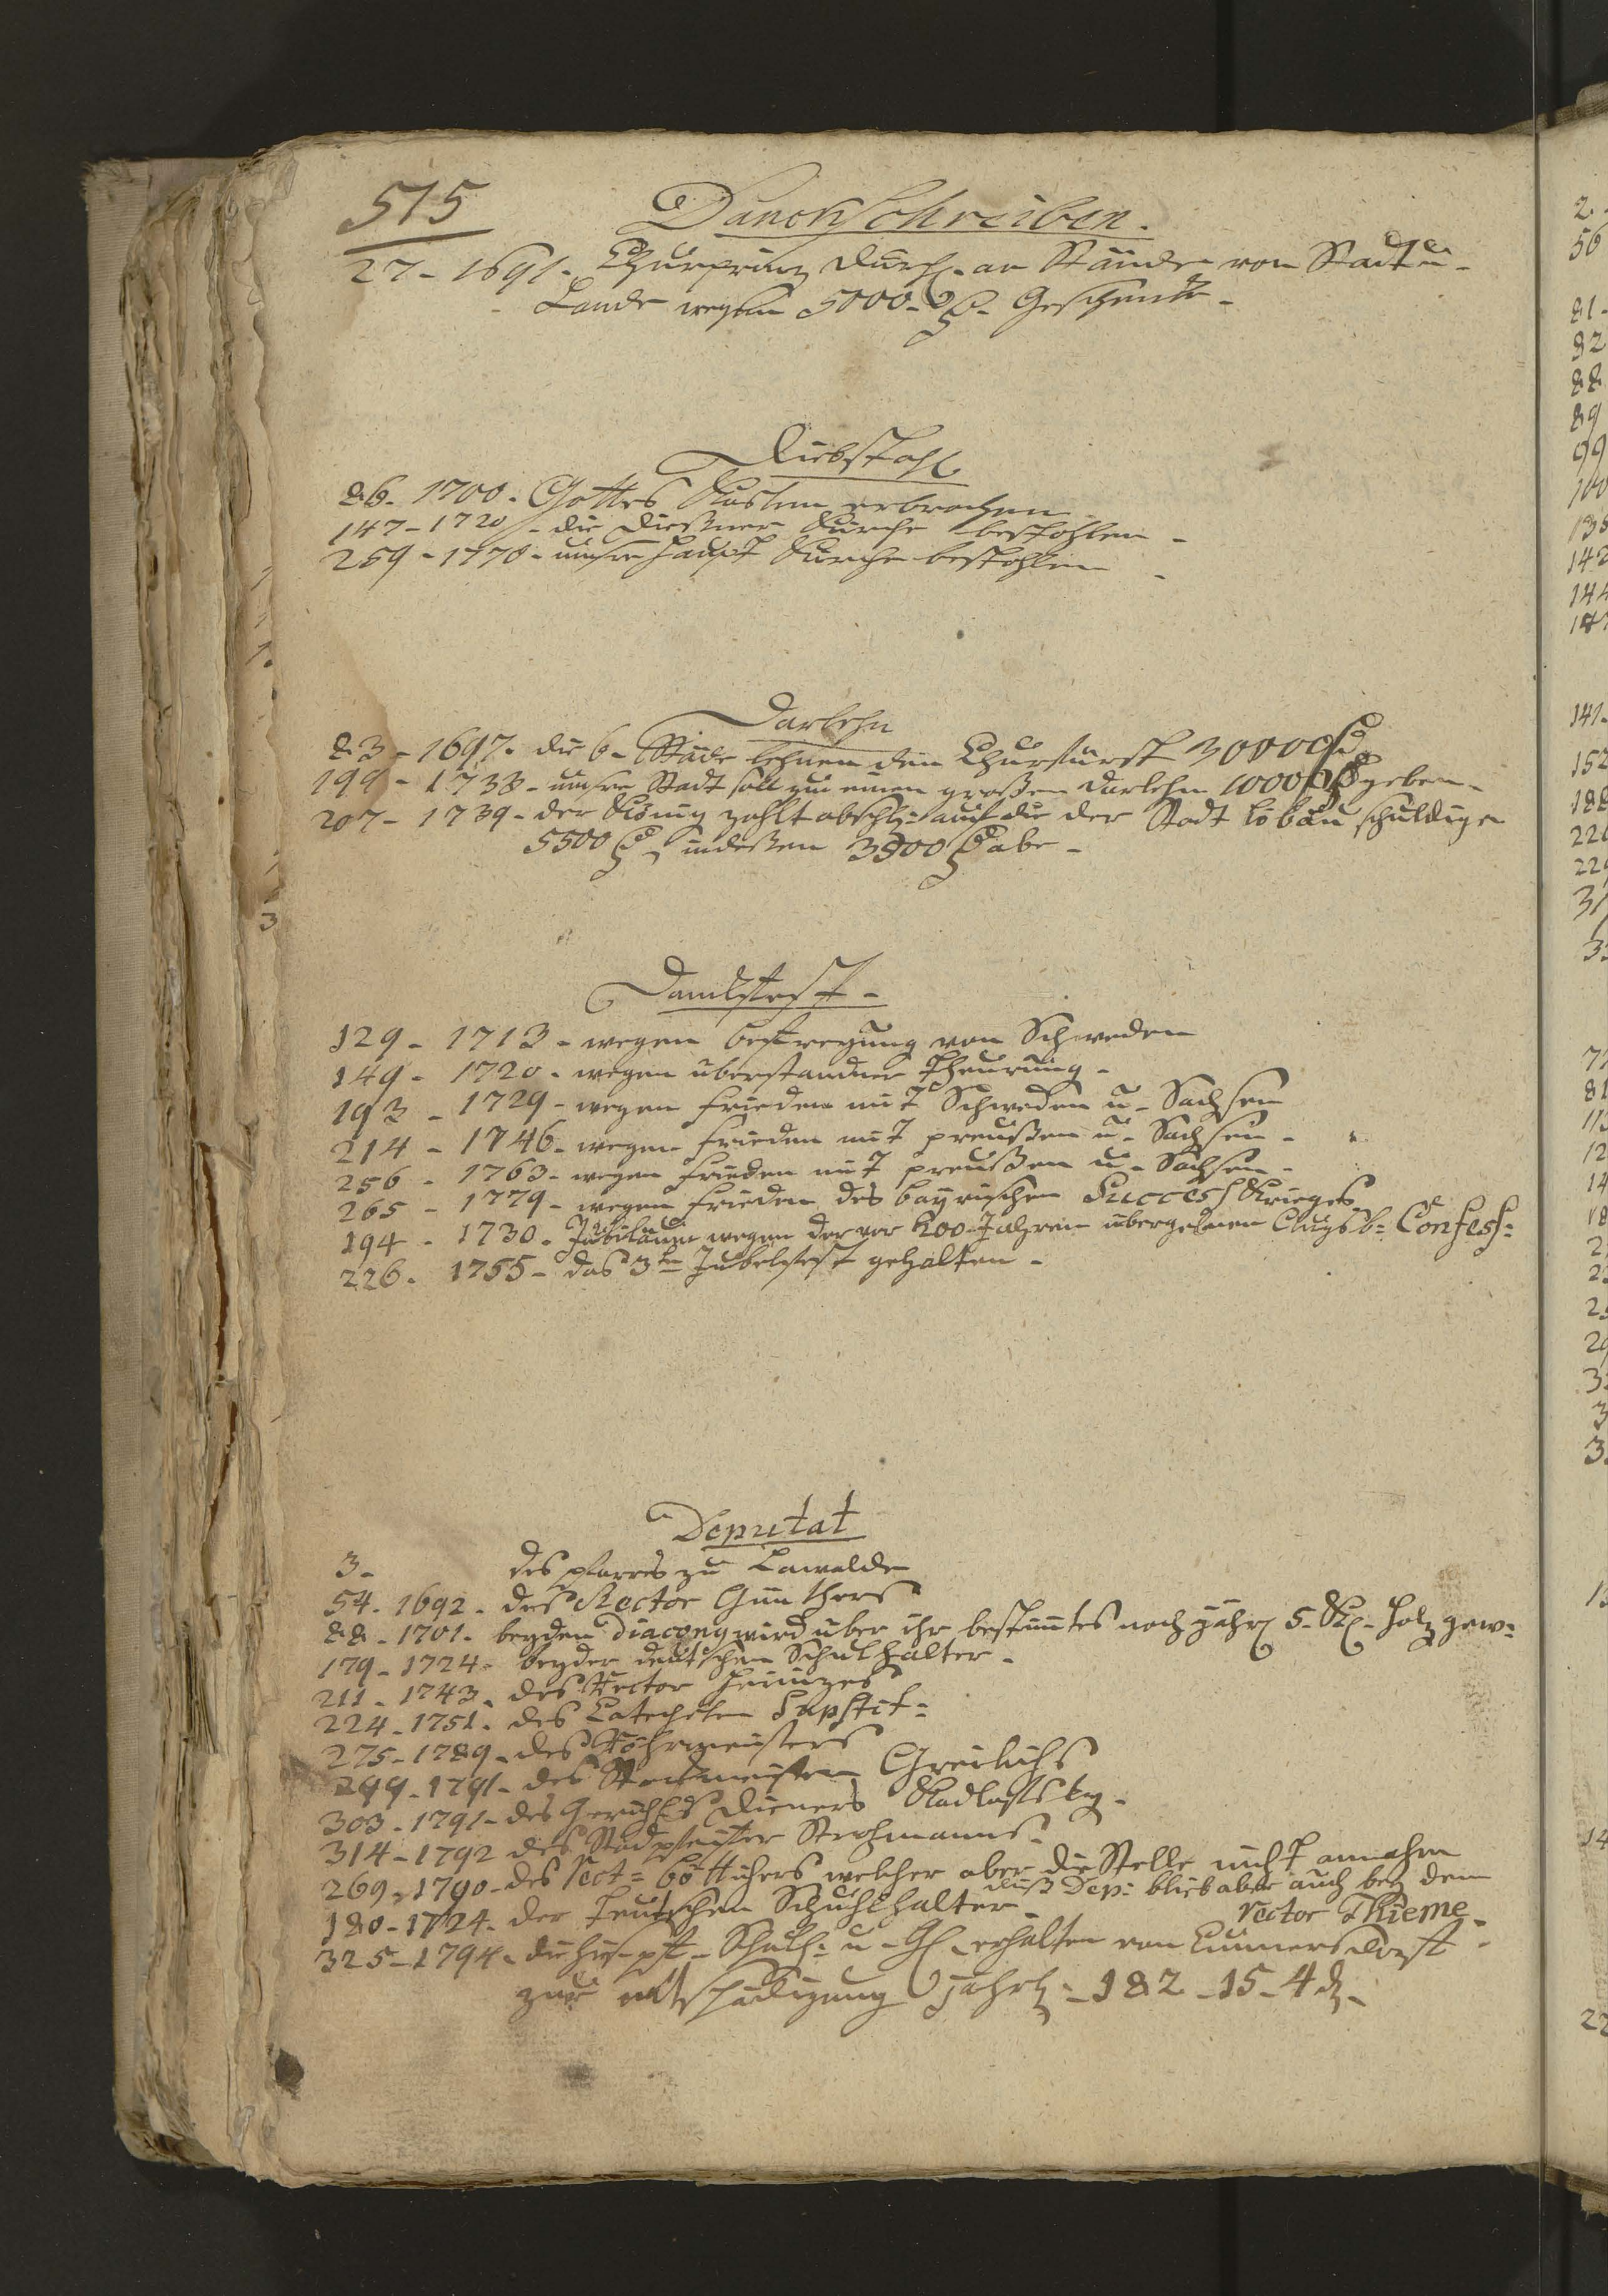 515
Danck Schreiben.
27 - 1691. Churprinz Durchl. an Stände von Stadt u -
Lande wegen 5000 - Geschenke -
Diebstahl
86. 1700. Gottes Kasten erbrochen
147 - 1720 - die Kirche bestohlen -
259 - 1770 - unsre Haupt Kirche bestohlen
Darlehn
83 - 1697. die 6 - Städte lehnen den Churfürst 30000
199 - 1738 - unsre Stadt soll zu einen großen Darlehn 1000 geben -
207 - 1739 - der König zahlt abschl: auf die der Stadt Löbau schuldigen
5500 indeßen 3900 abe -
Dankfest -
129 - 1713 - wegen befreyung von Schweden
149 - 1720 - wegen überstandner Theurung -
193 - 1729 - wegen Frieden mit Schweden u - Sachsen
214 - 1746 - wegen Frieden mit preußen u - Sachsen -
256 - 1763 - wegen Frieden mit preußen u - Sachsen -
265 - 1779 - wegen Frieden des bayrischen Success Krieges
194 - 1730 - Jubiläum wegen der vor 200 Jahren übergebnen Augsb: Confess:
226. 1755 - das 3te Jubelfest gehalten -
Deputat
3 - des pfarrs zu Lawalde
54. 1692 - des Rector Günthers
88. 1701. beyden Diacony wird über ihr bestimtes noch jährl 5 - Kl. Holz gew:
179 - 1724 - beyder deutschen Schulhalter -
211 - 1743 - des Rector
224 - 1751. des Catecheten
275 - 1789 - des Röhrmeisters
299 - 1791 - des Stockmeisters Greulichs
303 - 1791 - des Gerichts Dieners
314 - 1792 des Stadpfeiffer Strohmanns -
269 - 1790 - des Rect: Böttichers welcher aber die Stelle nicht annahm
dieß Dep: blieb aber auch bey dem
rector Thieme -
180 - 1724 - der Teutschen Schuhlhalter -
325 - 1794 - die Schulh: u - erhalten von Cunnersdorff
zur entschädigung jährl - 182 - 15 - 4 d -